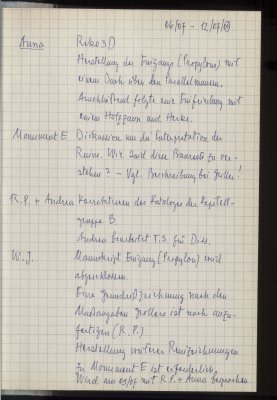 06/07 - 12/07/09
Anna Riko3D
Herstellung des Eingangs (Propylon) mit
einem Dach über den Parallelmauern.
Anschließend folgte eine Einfriedung mit
einem Holzzaun und Hecke.
Monument E Diskussion um die Interpretation der
Ruine. Wie sind diese zu ver-
stehen? - Vgl. Beschreibung bei Großer!
R.P. + Andrea Korrekturen des Katalogs der Kapitell-
gruppe B.
Andrea bearbeitet T.S. für Diss.
W.J. Manuskript Eingang (Propylon) wird
abgeschlossen.
Eine Grundrißzeichnung nach den
Maßangaben Großers ist noch anzu-
fertigen (R.P.).
Herstellung weiterer Reinzeichnungen
zu Monument E ist erforderlich.
Wird am 09/07 mit R.P. + Anna besprochen.